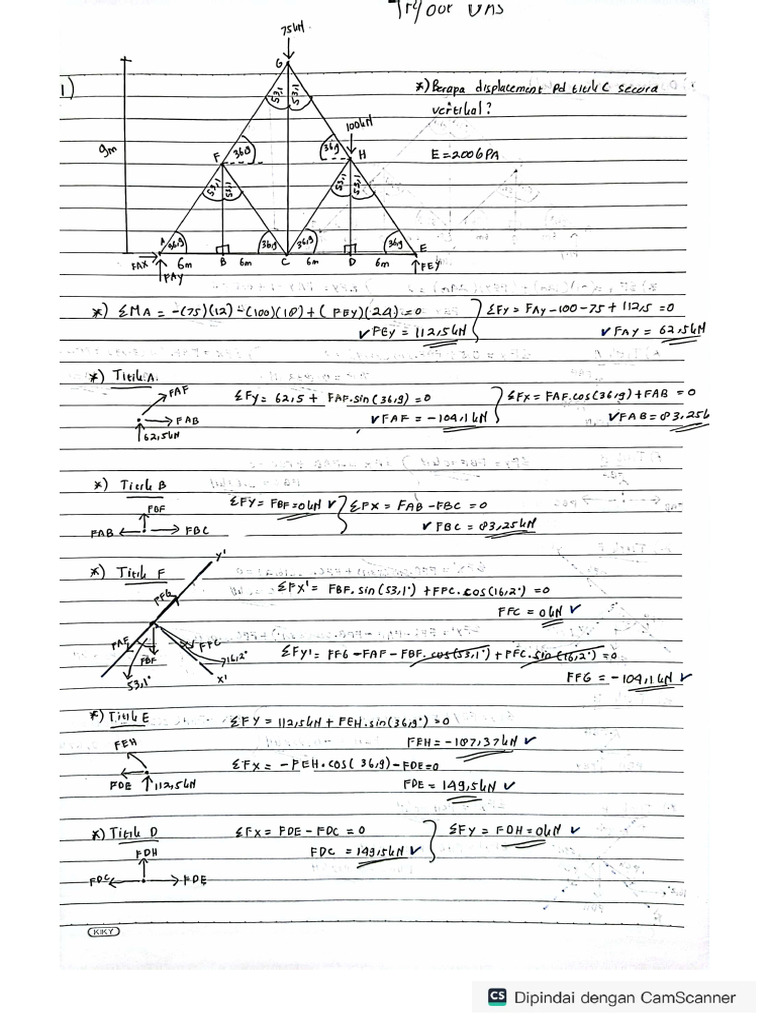 Try Out UAS
1)
75kN
G
53,1 53,1
*) Berapa displacement Pd titik C secara
vertikal?
100kN
9m
F 36,9
36,9 H
E=200GPA
53,1 53,1
53,1 53,1
A 36,9
36,9 36,9
36,9 E
FAX 6m B 6m C 6m D 6m
FAY
FEY
*) ΣMA = -(75)(12) -(100)(18) + (FEY)(24) = 0
✓FEY = 112,5kN
ΣFY = FAY-100-75 + 112,5 = 0
✓FAY = 62,5kN
*) Titik A
FAF
FAB
62,5kN
ΣFY = 62,5 + FAF.sin(36,9) = 0
✓FAF = -104,1kN
ΣFX = FAF.cos(36,9)+FAB = 0
✓FAB = 83,25k
*) Titik B
FBF
FAB FBC
ΣFY = FBF=0kN ✓
ΣFX = FAB -FBC = 0
✓FBC = 83,25kN
*) Titik F
y'
FFG
FAF
FBF
FFC
16,2°
53,1°
x'
ΣFX' = FBF.sin(53,1°) +FFC.cos(16,2°) =0
FFC = 0kN ✓
ΣFY' = FFG -FAF-FBF.cos(53,1°)+FFC.sin(16,2°)=0
FFG = -104,1kN ✓
*) Titik E
FEH
FDE 112,5kN
ΣFY = 112,5kN + FEH.sin(36,9°) =0
FEH = -187,37kN ✓
ΣFX = -FEH.cos(36,9)-FDE=0
FDE = 149,5kN ✓
*) Titik D
FDH
FDC FDE
ΣFX = FDE - FDC = 0
FDC = 149,5kN ✓
ΣFY = FDH=0kN ✓
KIKY
CS Dipindai dengan CamScanner